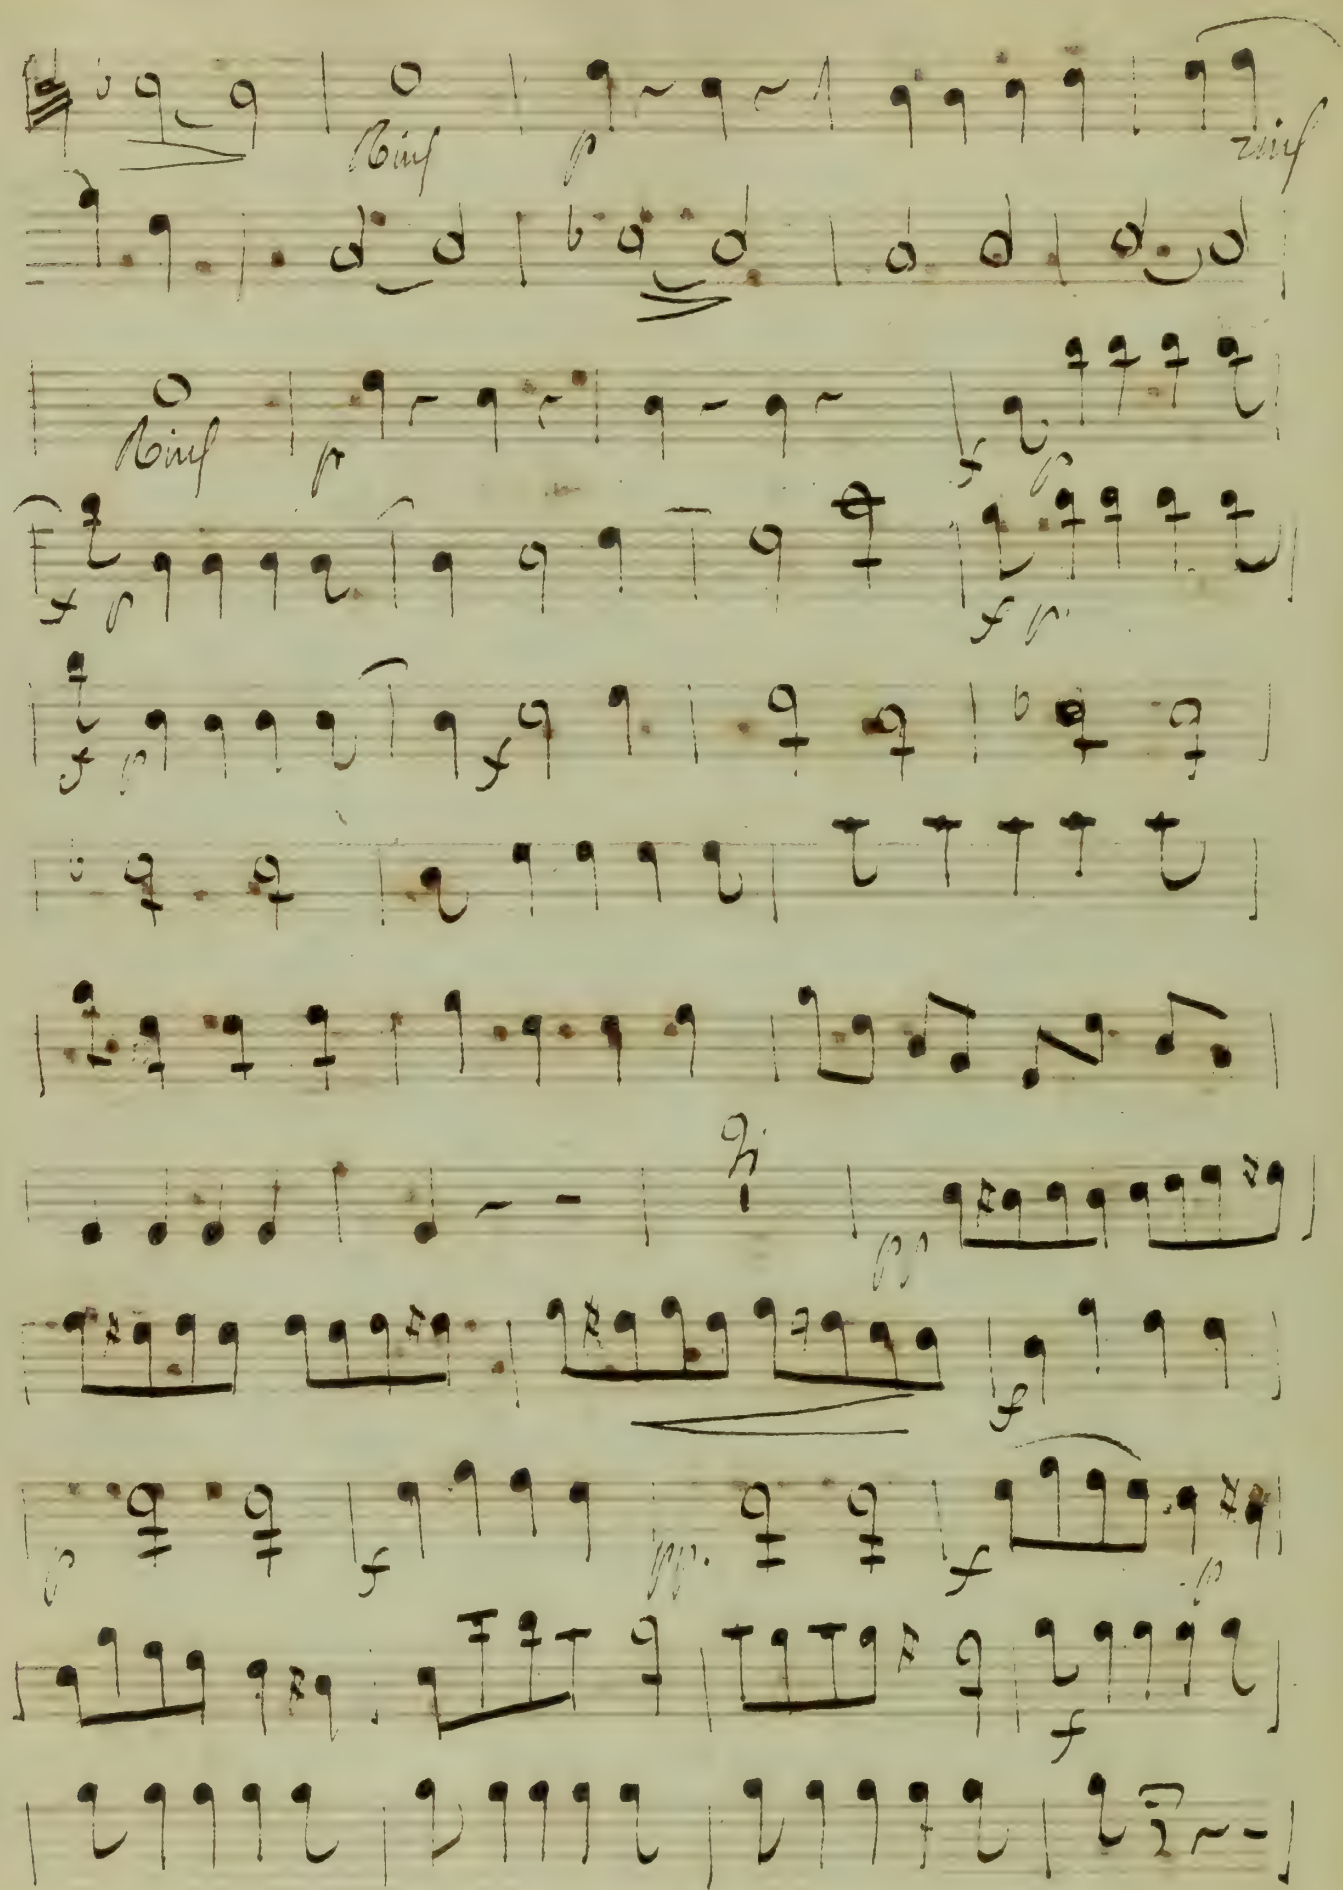 Rinf p rinf
Rinf p f p
f p f p
f p f
pp
f
p f pp. f p
f